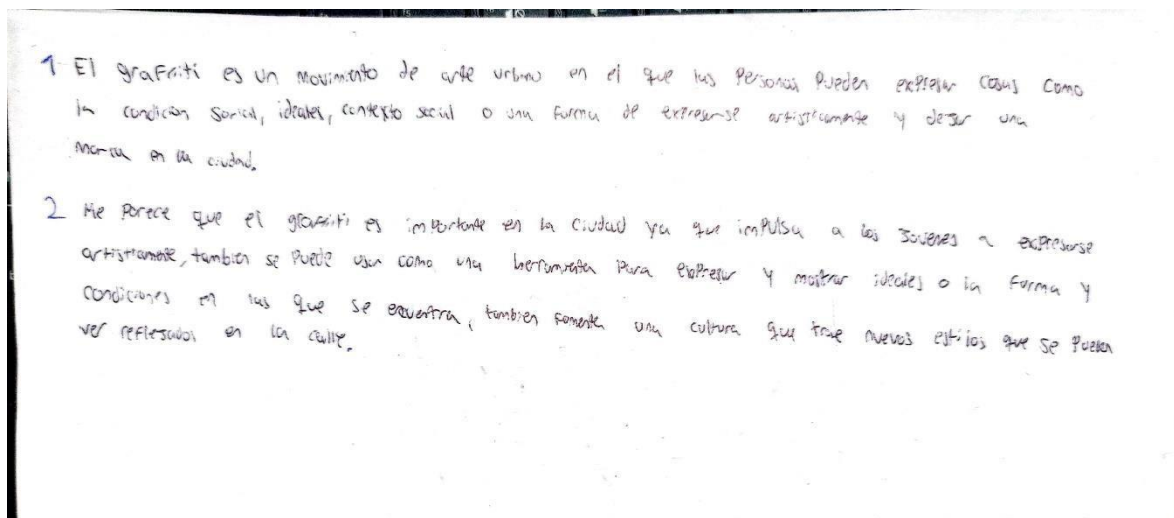 1 El graffiti es un movimiento de arte urbano en el que las Personas Pueden expresar cosas como
la condicion social, ideales, contexto social o una forma de expresarse artisticamente y dejar una
marca en la ciudad.
2 Me Parece que el graffiti es importante en la ciudad ya que impulsa a los Jovenes a expresarse
artisticamente, tambien se Puede usar como una herramienta Para expresar y mostrar ideales o la forma y
condiciones en las que se encuentra, tambien fomenta una cultura que trae nuevos estilos que se Pueden
ver reflejados en la calle.